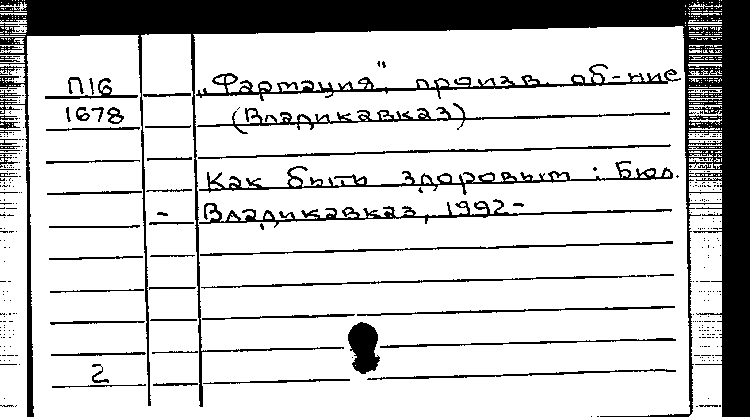 П16
1678
„Фармация", произв. об-ние
(Владикавказ)
Как быть здоровым : Бюл.
- Владикавказ, 1992-
2